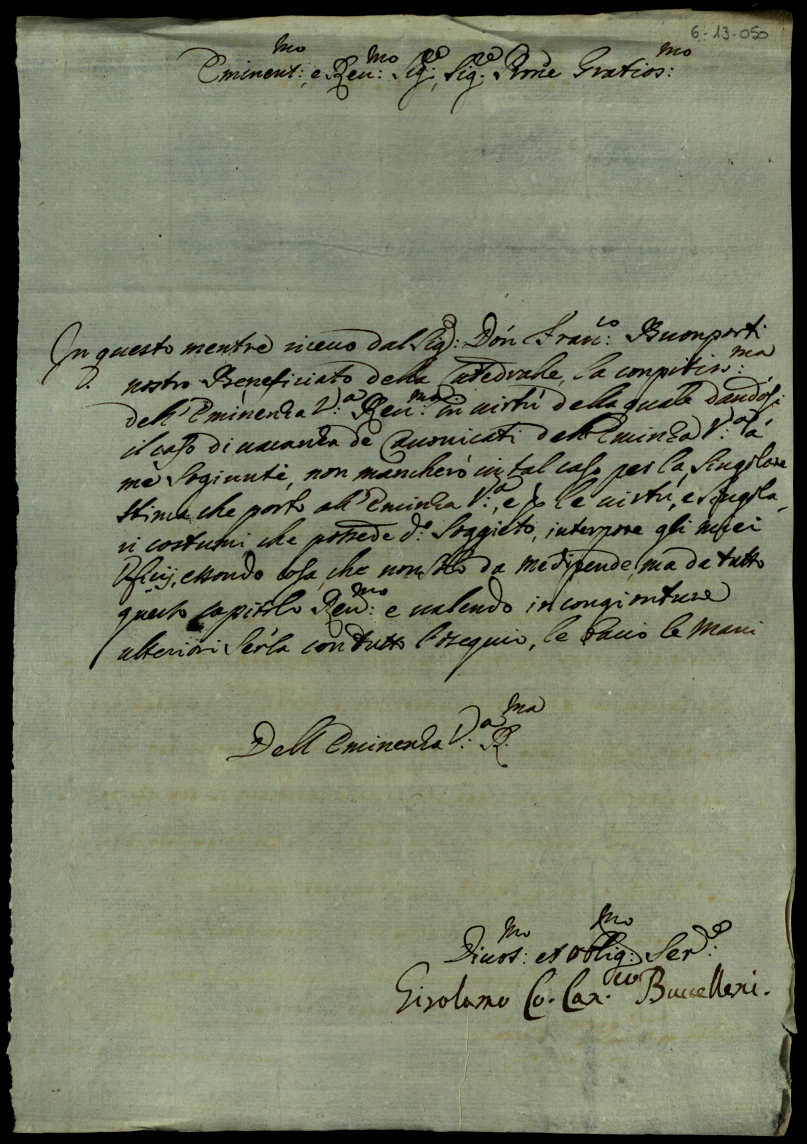 6-13-050
Eminent:mo e Reu:mo Sig:re, Sig:re Prone Gratios:mo
In questo mentre riceuo dal Sig: Don Fran:co Buonporti
nostro Beneficiato della Catedrale, la conpitis:ma
dell'Eminenza V:a Reu:ma in uirtù della quale dandosi
il caso di uacanza de Canonicati dell'Eminza V:a à
mè sogiunte, non mancherò in tal caso per la singolare
stima che porto all'Eminza V:a, e p le uirtù, e singola,
ri costumi che possede d:o Soggieto, interpore gli miei
Oficij, essendo cosa, che non solo da me dipende, ma da tutto
questo Capitolo Reu:mo e ualendo in congionture
ulteriori Serla con tutto l'osequio, le bacio le mani
Dell'Eminenza V:a R:ma
Diuot:mo et oblig:mo Ser:e
Girolamo Co. Can:co Buccelleni.